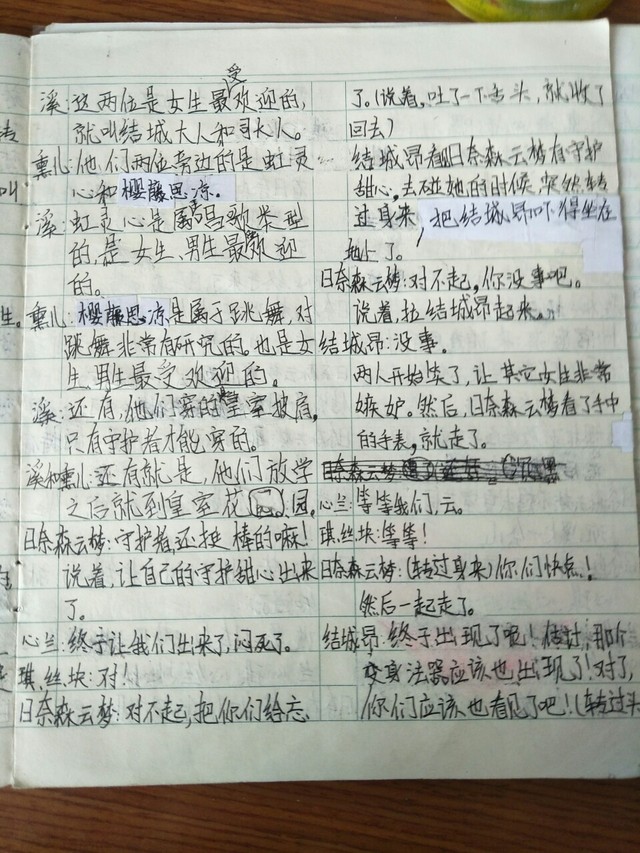 溪:这两位是女生最受欢迎的,
就叫结城大人和司大人。
熏儿:他们两位旁边的是虹灵
心和樱藤思凉。
溪:虹灵心是属于唱歌类型
的,是女生、男生最受欢迎
的。
熏儿:樱藤思凉,是属于跳舞,对
跳舞非常有研究的。也是女
生、男生最受欢迎的。
溪:还有,他们穿的皇室披肩,
只有守护者才能穿的。
溪和熏儿:还有就是,他们放学
之后就到皇室花园。
日奈森云梦:守护者,还挺棒的嘛!
说着,让自己的守护甜心出来
了。
心兰:终于让我们出来了,闷死了。
琪.丝.块:对!
日奈森云梦:对不起,把你们给忘
了。(说着,吐了一下舌头,就收了
回去)
结城昂看日奈森云梦有守护
甜心,去碰她的时候,突然转
过身来,把结城昂吓得坐在
地上了。
日奈森云梦:对不起,你没事吧。
说着,拉结城昂起来。
结城昂:没事。
两人开始笑了,让其它女生非常
嫉妒。然后,日奈森云梦看了手中
的手表,就走了。
心兰:等等我们,云。
琪.丝.块:等等!
日奈森云梦:(转过身来)你们快点!
然后一起走了。
结城昂:终于出现了吧!估计,那个
变身法器应该也出现了!对了,
你们应该也看见了吧!(转过头